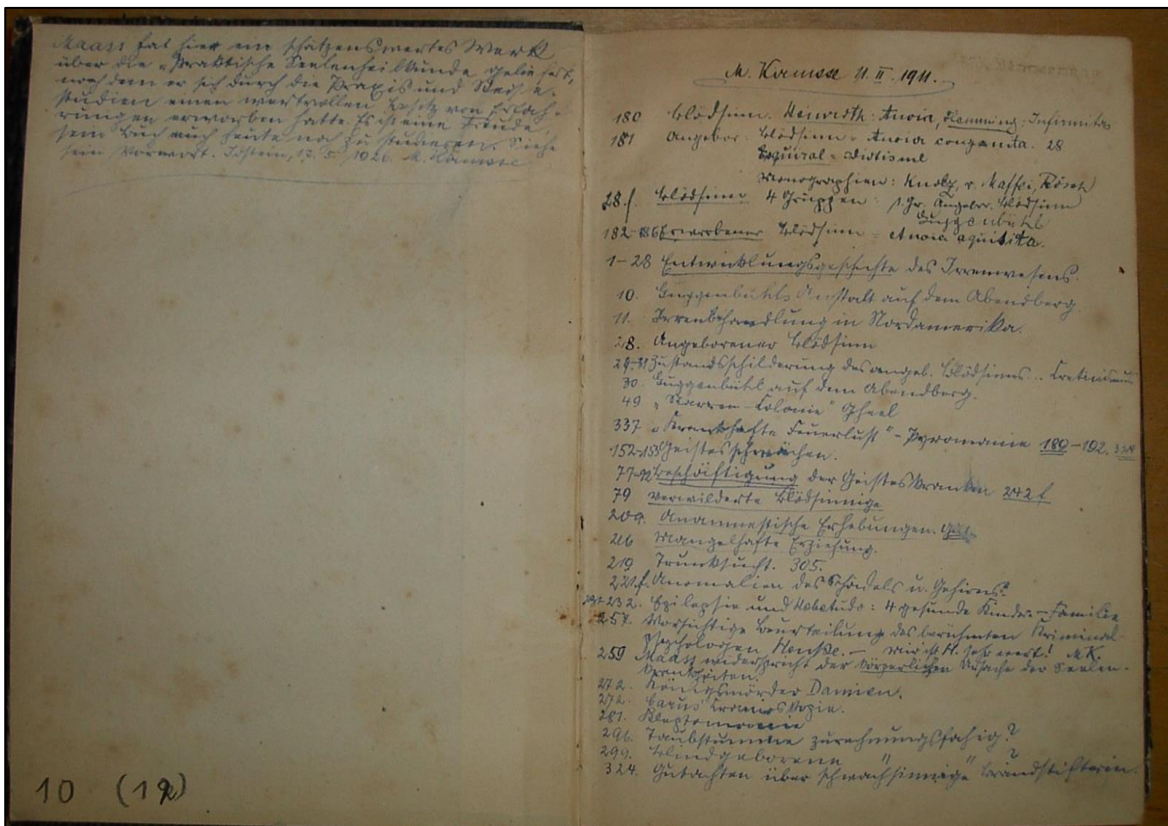 Maass hat hier ein schätzenswertes Werk
über die "Praktische Seelenheilkunde geliefert,
nachdem er sich durch die Praxis und Reise-
studien einen wertvollen Besitz von Erfah-
rungen erworben hatte. Es ist eine Freude
sein Buch auch heute noch zu studieren. Siehe
sein Vorwort. Idstein, 1926. M.
10 (12)
M. 11. II. 1911.
180 Blödsinn. Heinroth: Anoia, Infirmitas
181 Angebor. Blödsinn = Anoia congenita. 28
Esquirol = Idiotisme
Monographien: Knolz, v. Maffei, Rösch
28.f. Blödsinn 4 Gruppen: 1. Gr. Angebor. Blödsinn
Guggenbühl
182-186 Erworbener Blödsinn = Anoia aquisita.
1-28 Entwicklungsgeschichte des Irrenwesens.
10. Guggenbühls Anstalt auf dem Abendberg.
11. Irrenbehandlung in Nordamerika.
28. Angeborener Blödsinn
29-31 Zustandsschilderung des angeb. Blödsinns.. Cretinismus
30. Guggenbühl auf dem Abendberg.
49 "Narren-Colonie" Gheel
337 "Krankhafte Feuerlust" - Pyromanie 189-192.
152-155 Geistesschwächen.
77-92 Beschäftigung der Geisteskranken 242f
79 Verwilderte Blödsinnige
209. Anamnestische Erhebungen.
216 Mangelhafte Erziehung.
219 Trunksucht. 305.
221.f. Anomalien des Schädels u. Gehirns.
232. Epilepsie und Hebetudo: 4 gesunde Kinder - Familie
257. Vorsichtige Beurteilung des berühmten Kriminal-
psychologen Henke. - mir ist H. sehr wert! M.K.
259 Maass widerspricht der körperlichen Ursache der Seelen-
krankheiten.
272. Königsmörder Damien.
272. Carus' Cranioskopie.
281. Kleptomanie
296. Taubstumme zurechnungsfähig?
299. Blindgeborene " ?
324. Gutachten über "schwachsinnige" Brandstifterin.